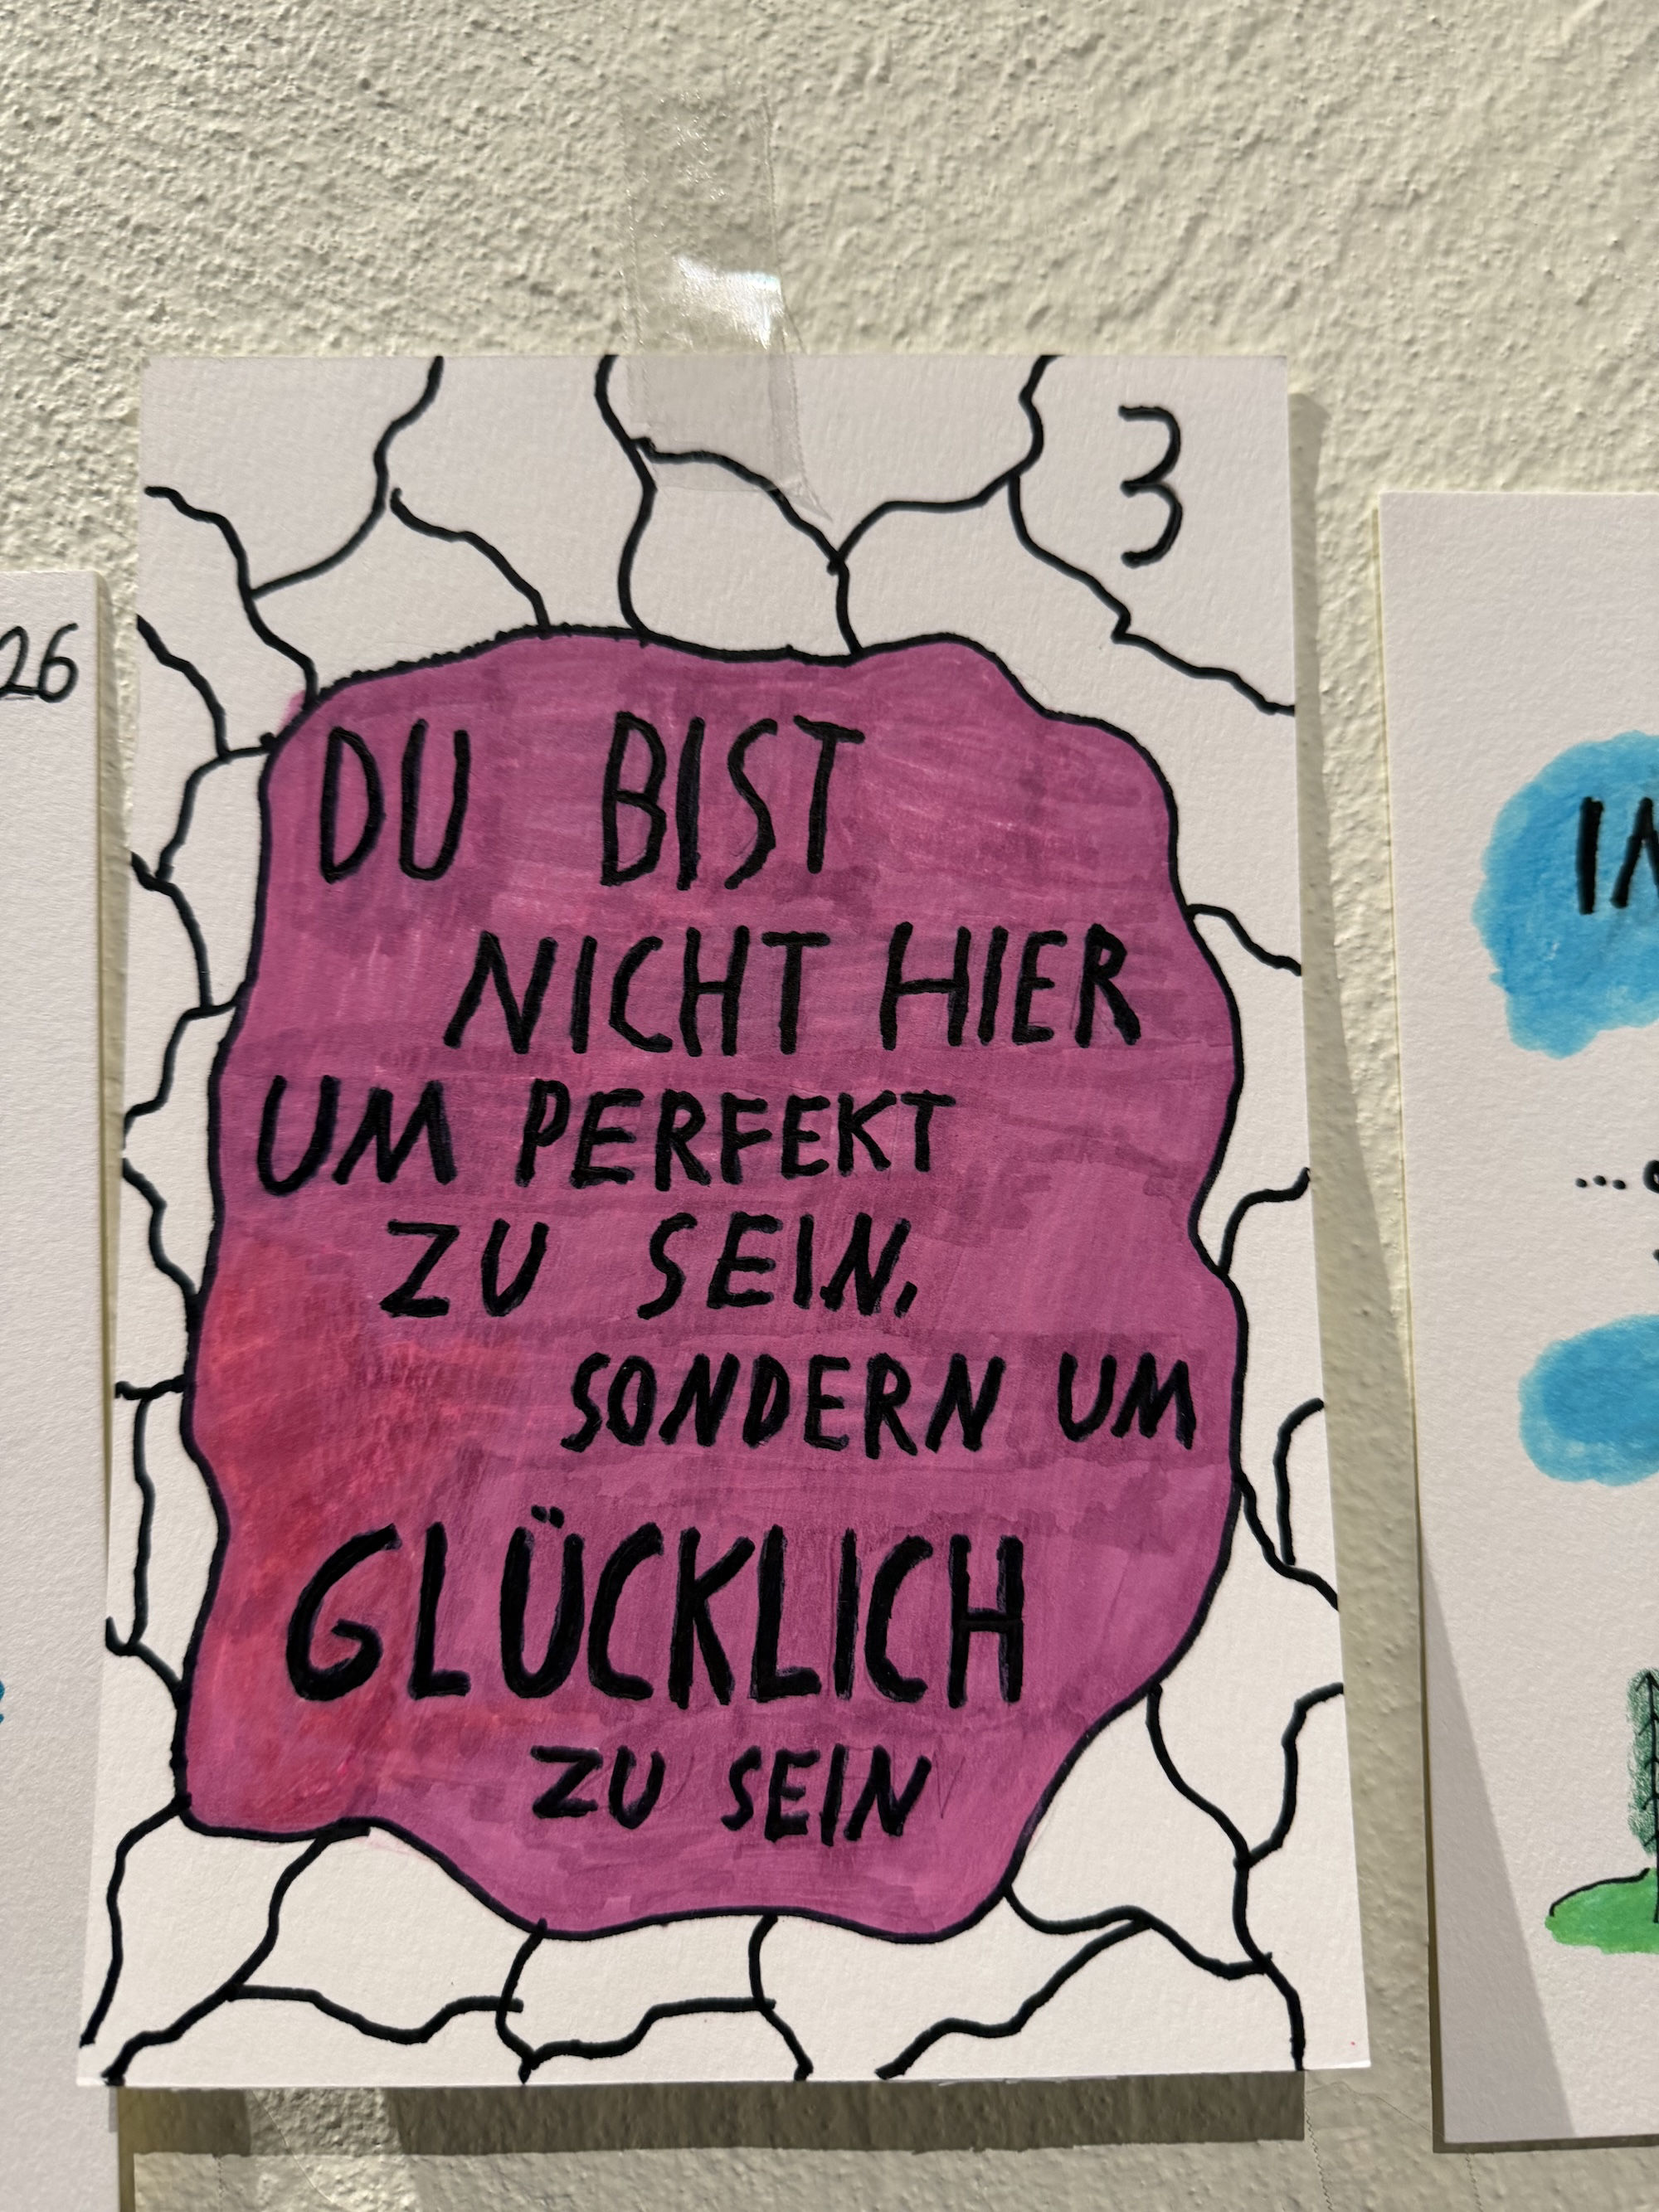 26
3
DU BIST
NICHT HIER
UM PERFEKT
ZU SEIN,
SONDERN UM
GLÜCKLICH
ZU SEIN